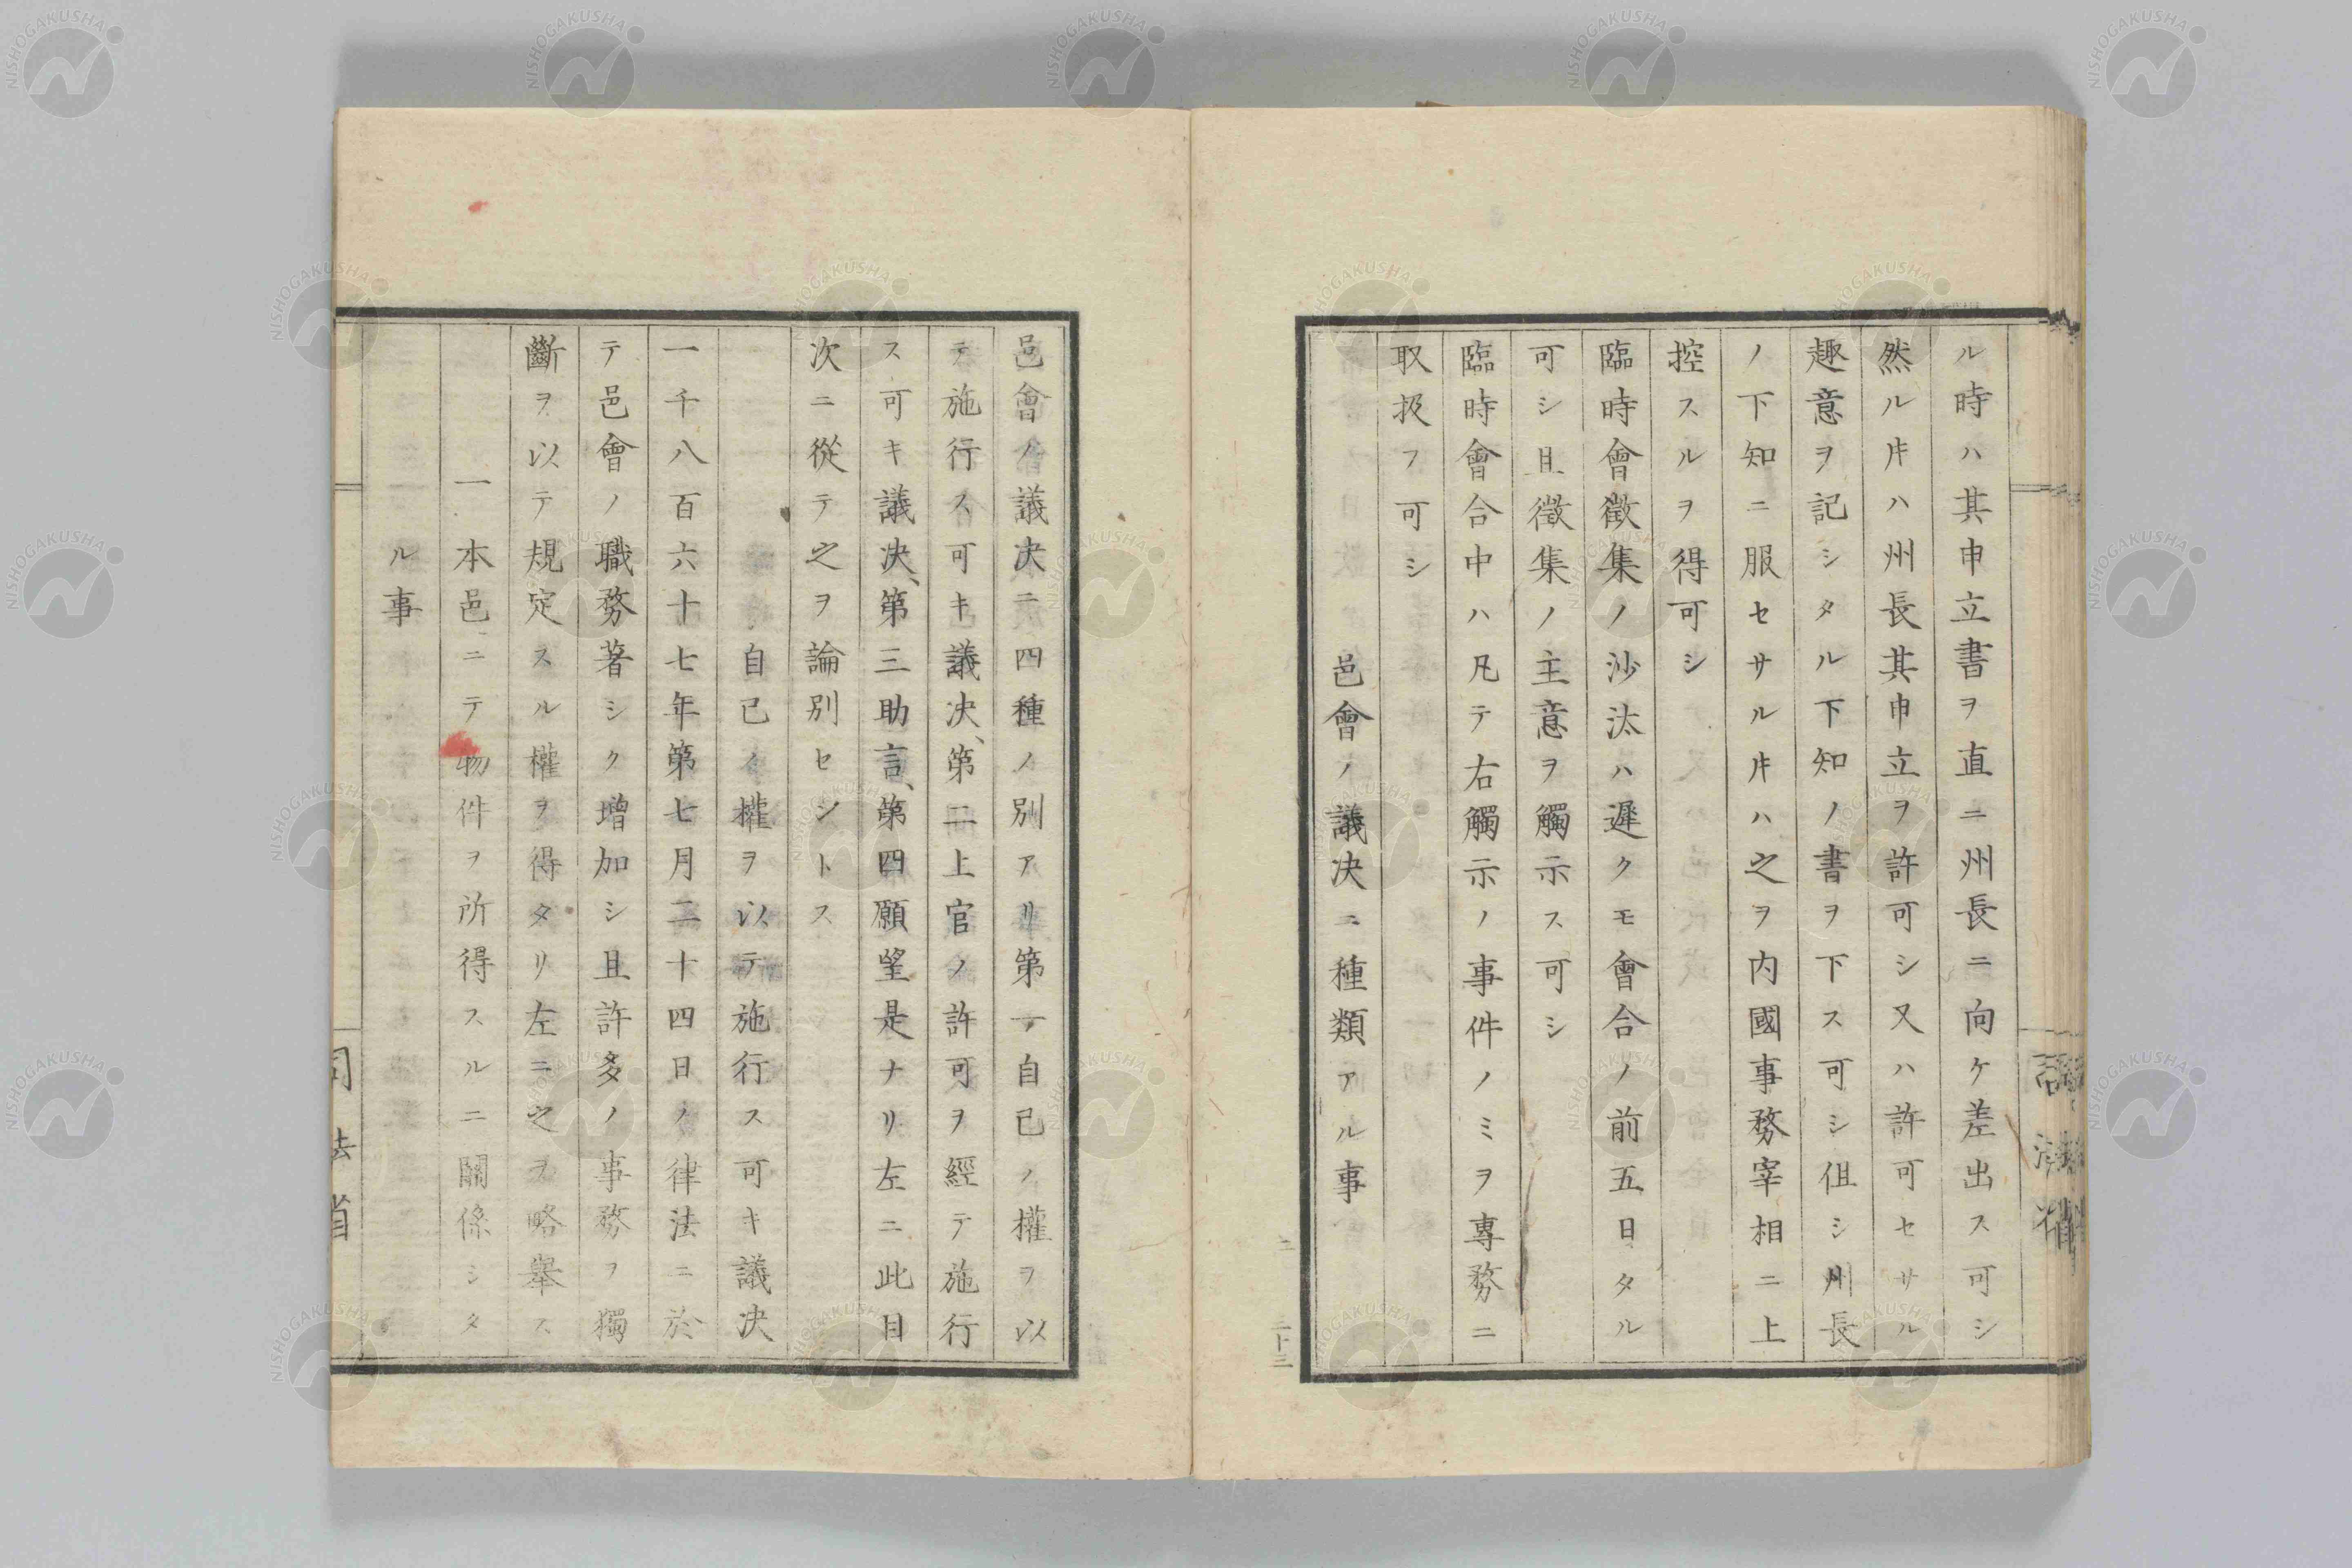 ル時ハ其申立書ヲ直ニ州長ニ向ケ差出ス可シ
然ル㪳ハ州長其申立ヲ許可シ又ハ許可セサル
趣意ヲ記シタル下知ノ書ヲ下ス可シ伹シ州長
ノ下知ニ服セサル㪳ハ之ヲ内國事務宰相ニ上
控スルヲ得可シ
臨時會徵集ノ沙汰ハ遲クモ會合ノ前五日タル
可シ且徵集ノ主意ヲ觸示ス可シ
臨時會合中ハ凡テ右觸示ノ事件ノミヲ專務ニ
取扱フ可シ
邑會ノ議决ニ種類アル事
三十三
邑會ノ議决ニ四種ノ別アリ第一自已ノ權ヲ以
テ施行ス可キ議决、第二上官ノ許可ヲ經テ施行
ス可キ議决、第三助言、第四願望是ナリ左ニ此目
次ニ從テ之ヲ論別セントス
自已ノ權ヲ以テ施行ス可キ議决
一千八百六十七年第七月二十四日ノ律法ニ於
テ邑會ノ職務著シク增加シ且許多ノ事務ヲ獨
斷ヲ以テ規定スル權ヲ得タリ左ニ之ヲ略擧ス
一本邑ニテ物件ヲ所得スルニ關係シタ
ル事
司法省
NISHOGAKUSHA